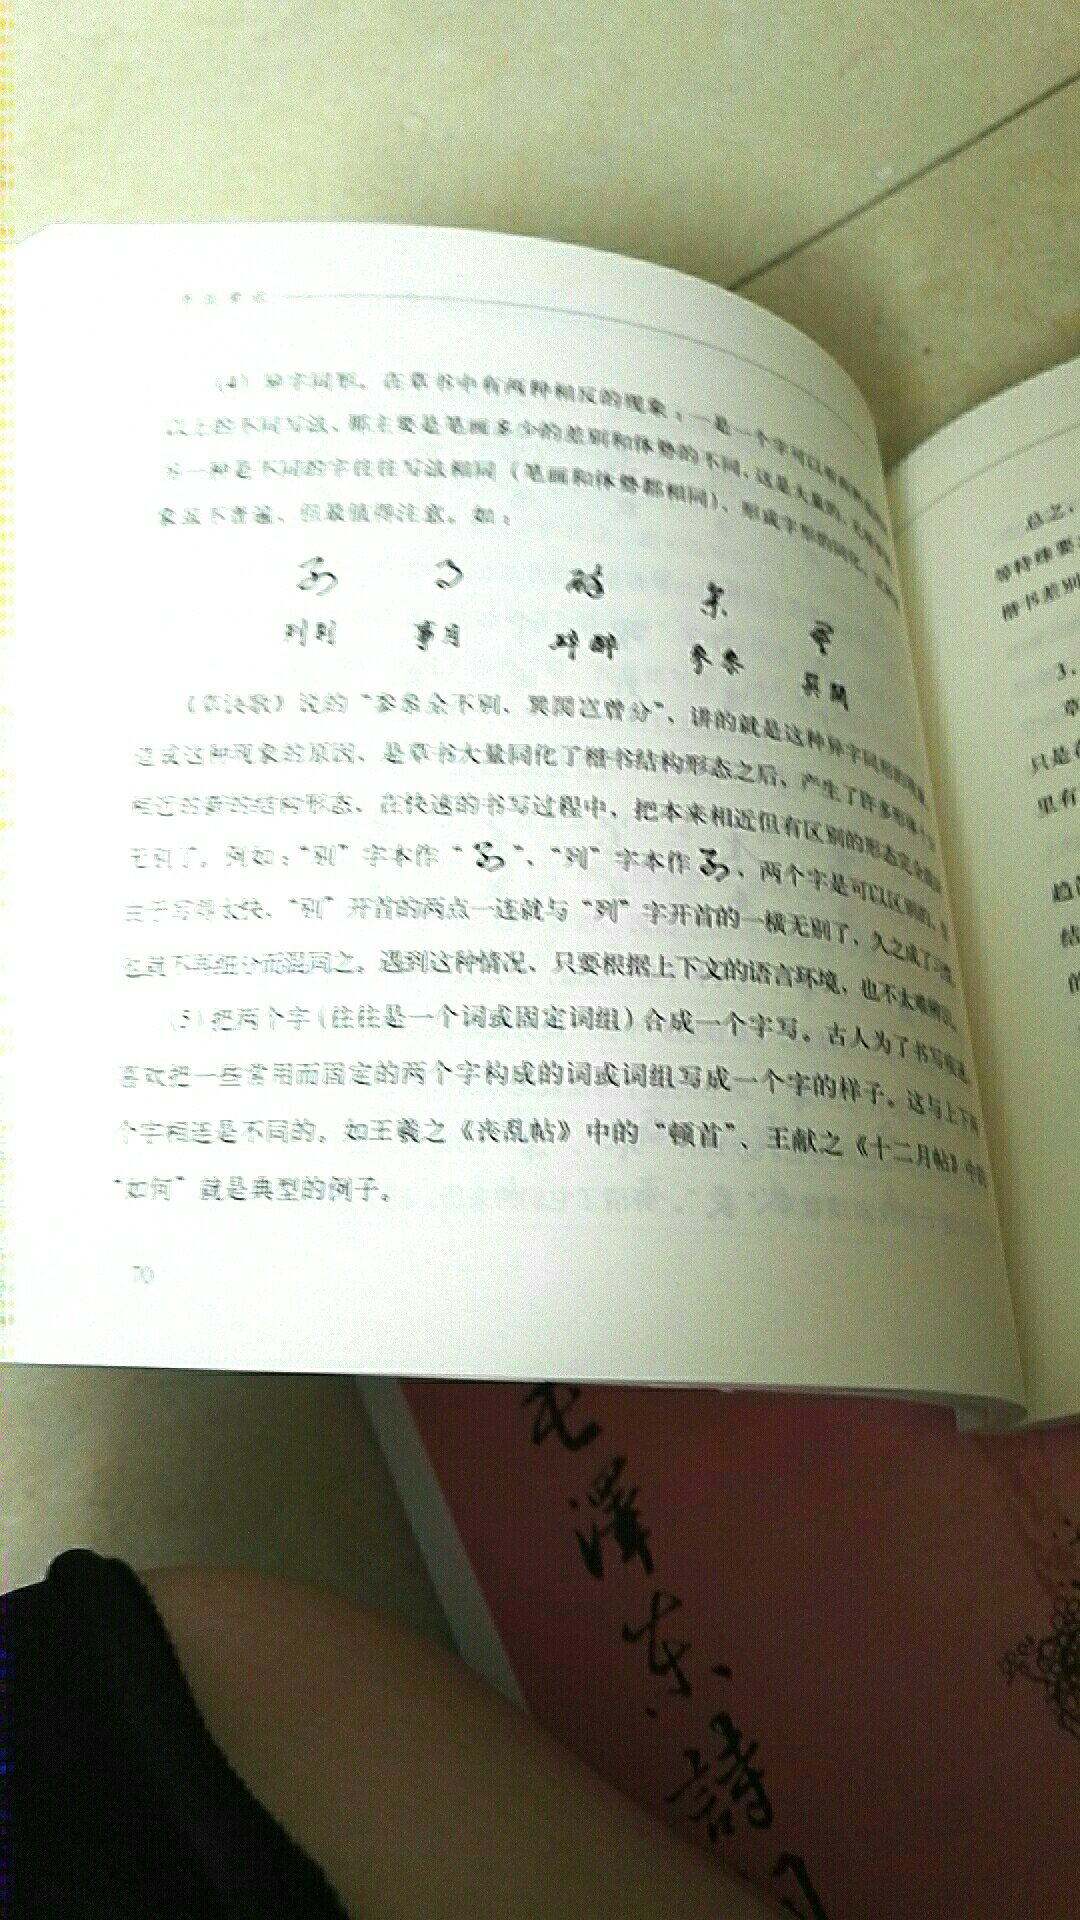 (4) 异字同形。在草书中有两种相反的现象：一是一个字可以有两种
以上的不同写法，那主要是笔画多少的差别和体势的不同，这是大量的，
另一种是不同的字往往写法相同（笔画和体势都相同），形成字形的同化，
象虽不普遍，但最值得注意。如：
列别 事月 碎醉 参叅 巽闋
《草诀歌》说的“参叅全不别，巽闋岂曾分”，讲的就是这种异字同形的现象。
造成这种现象的原因，是草书大量同化了楷书结构形态之后，产生了许多
相近的新的结构形态，在快速的书写过程中，把本来相近但有区别的形态完全
无别了。例如：“别”字本作“ ”、“列”字本作 ，两个字是可以区别的，
由于写得太快，“别”开首的两点一连就与“列”字开首的一横无别了，久之成了习惯，
也就不再细分而混同之。遇到这种情况，只要根据上下文的语言环境，也不太难辨认。
(5) 把两个字（往往是一个词或固定词组）合成一个字写。古人为了书写
喜欢把一些常用而固定的两个字构成的词或词组写成一个字的样子。这与上下两
个字相连是不同的。如王羲之《丧乱帖》中的“顿首”、王献之《十二月帖》中的
“如何”就是典型的例子。
70
总之，
等特殊要
楷书差别
3.
草
只是
里有
趋
结
的
毛泽东诗